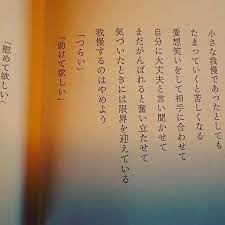 小さな我慢であったとしても
たまっていくと苦しくなる
愛想笑いをして相手に合わせて
自分に大丈夫と言い聞かせて
まだがんばれると奮い立たせて
気づいたときには限界を迎えている
我慢するのはやめよう
「つらい」
「助けて欲しい」
「慰めて欲しい」